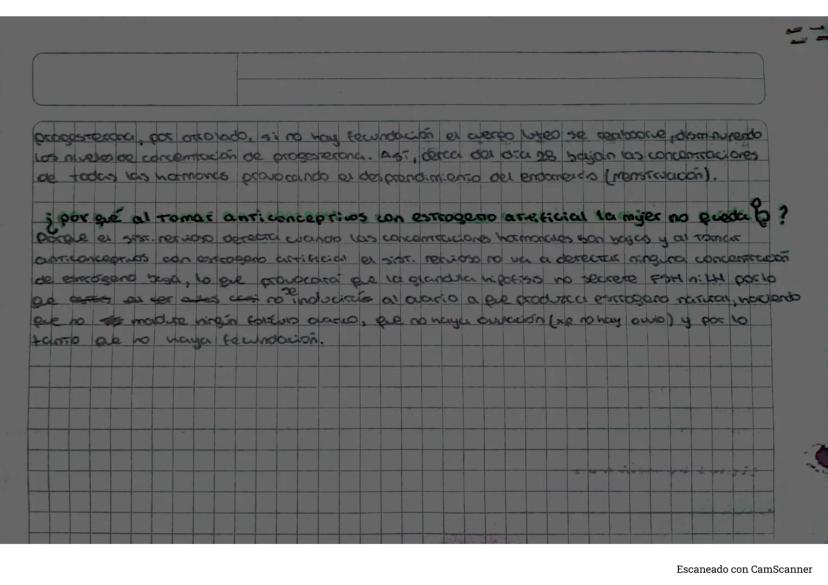 progesterona, por otro lado, si no hay fecundación el cuerpo lúteo se reabsorve, disminuyendo
los niveles de concentración de progesterona. Así, cerca del día 28 bajan las concentraciones
de todas las hormonas provocando el desprendimiento del endometrio (menstruación).
¿por qué al tomar anticonceptivos con estrogeno artificial la mujer no queda ?
Porque el sist. nervioso detecta cuando las concentraciones hormonales son bajas y al tomar
anticonceptivos con estrogeno artificial el sist. nervioso no va a detectar ninguna concentración
de estrógeno baja, lo que provocará que la glandula hipofisis no secrete FSH ni LH por lo
que no se induciría al ovario a que produzca estrogeno natural, haciendo
que no madure ningún folículo ovarico, que no haya ovulación (xq no hay ovulo) y por lo
tanto que no haya fecundación.
Escaneado con CamScanner